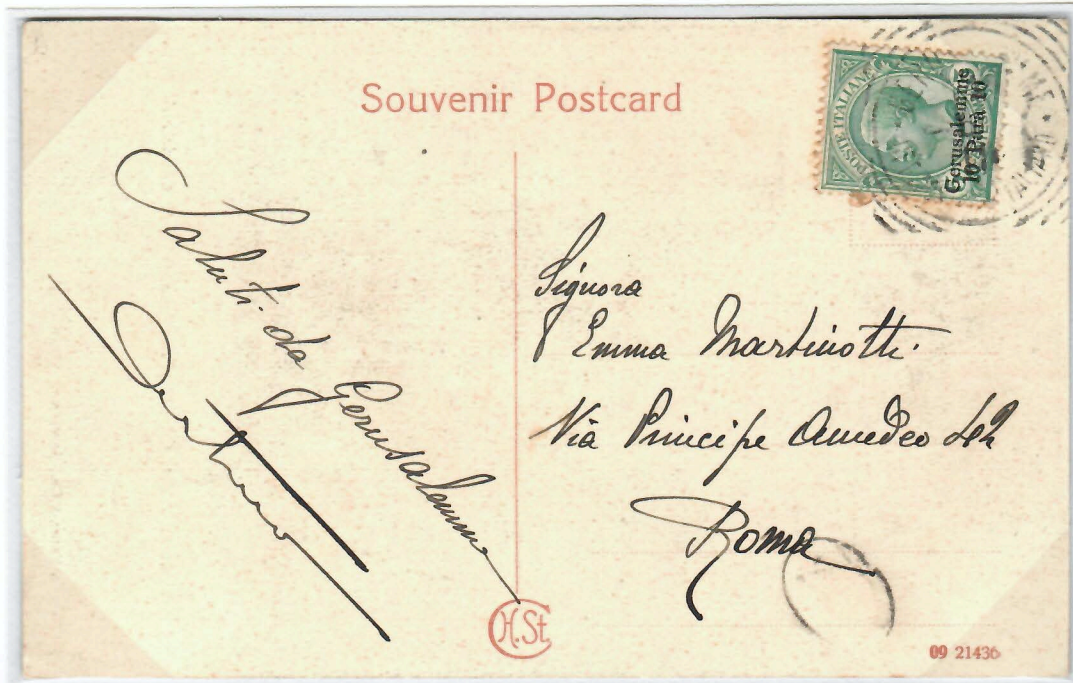 Souvenir Postcard
POSTE ITALIANE
Gerusalemme
10 Parà 10
Saluti da Gerusalemme
Signora
Emma Martinotti
Via Principe Amedeo
Roma
C H. St.
09 21436